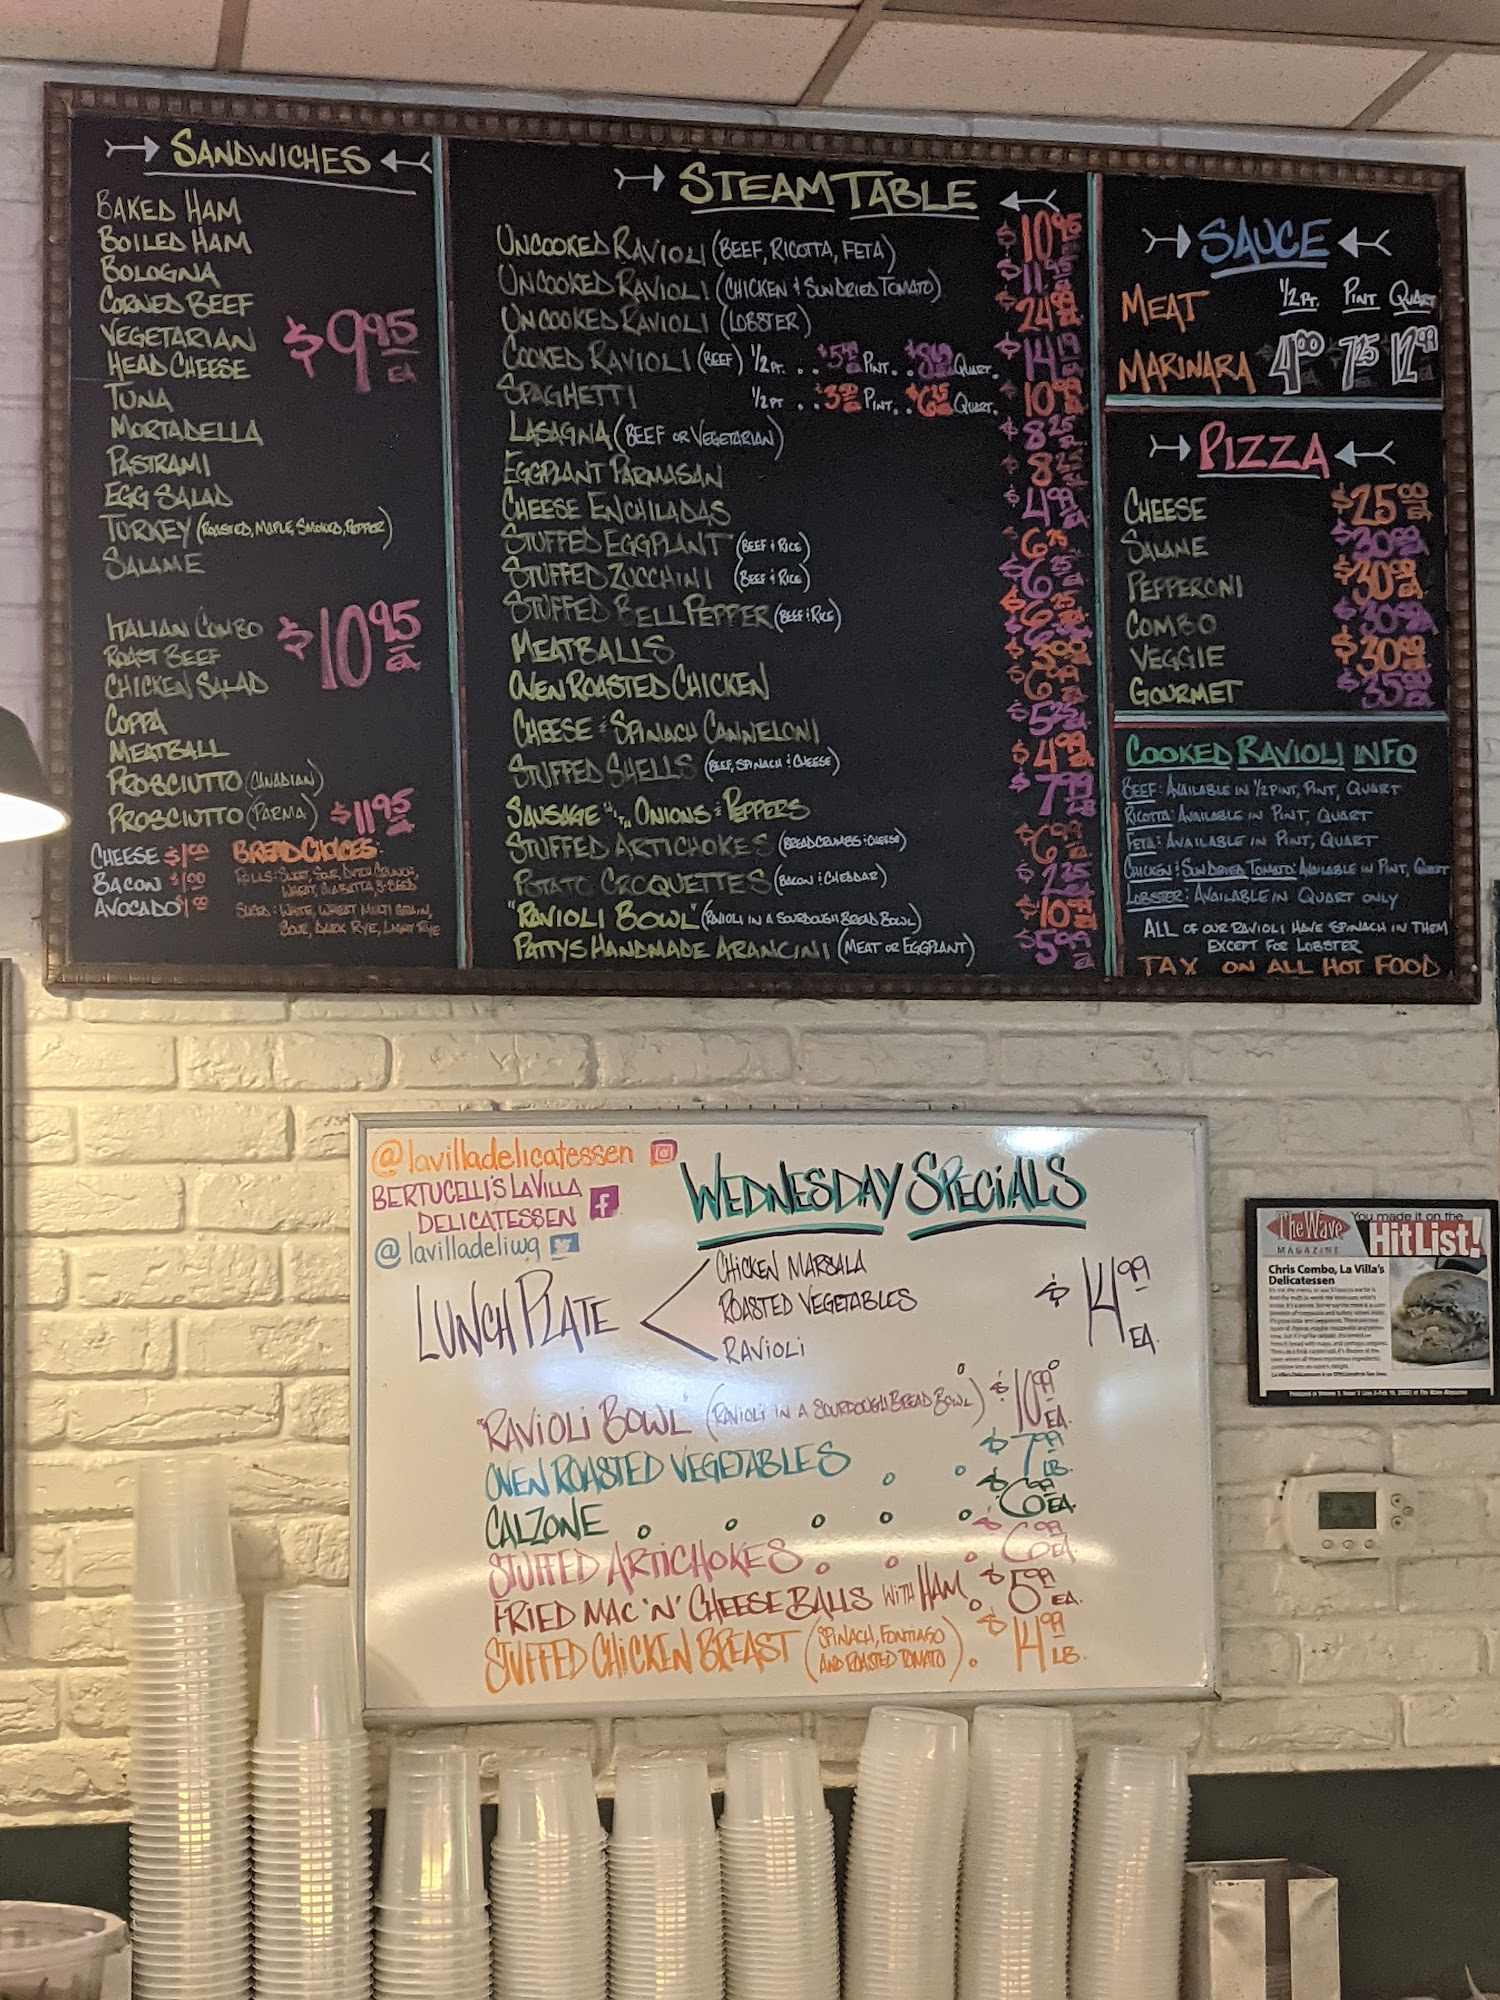 SANDWICHES
BAKED HAM
BOILED HAM
BOLOGNA
CORNED BEEF
VEGETARIAN
HEAD CHEESE
$9.95 EA
TUNA
MORTADELLA
PASTRAMI
EGG SALAD
TURKEY (ROASTED, MAPLE, SMOKED, PEPPER)
SALAME
ITALIAN COMBO
ROAST BEEF
CHICKEN SALAD
$10.95 EA
COPPA
MEATBALL
PROSCIUTTO (CANADIAN)
PROSCIUTTO (PARMA) $11.95 EA
CHEESE $1.00
BACON $1.00
AVOCADO $1.00
BREAD CHOICES:
ROLLS: SWEET, SOUR, DUTCH CRUNCH,
WHEAT, CIABATTA, 3-SEED
SLICED: WHITE, WHEAT, MULTI GRAIN,
SOUR, DARK RYE, LIGHT RYE
STEAM TABLE
UNCOOKED RAVIOLI (BEEF, RICOTTA, FETA) $10.95
UNCOOKED RAVIOLI (CHICKEN & SUNDRIED TOMATO) $11.95
UNCOOKED RAVIOLI (LOBSTER) $24.99
COOKED RAVIOLI (BEEF) 1/2 PT. . . $5.49 PINT. . $8.69 QUART. $14.19
SPAGHETTI 1/2 PT . . $3.50 PINT. . $6.25 QUART. $10.99
LASAGNA (BEEF OR VEGETARIAN) $8.25
EGGPLANT PARMASAN $8.25
CHEESE ENCHILADAS $4.99 EA
STUFFED EGGPLANT (BEEF & RICE) $6.75
STUFFED ZUCCHINI (BEEF & RICE) $6.25 EA
STUFFED BELL PEPPER (BEEF & RICE)
MEATBALLS
OVEN ROASTED CHICKEN
CHEESE & SPINACH CANNELONI $5.25
STUFFED SHELLS (BEEF, SPINACH & CHEESE) $4.99 EA
SAUSAGE WITH ONIONS & PEPPERS $7.99 LB
STUFFED ARTICHOKES (BREADCRUMBS & CHEESE) $6.99
POTATO CROQUETTES (BACON & CHEDDAR) $2.25
"RAVIOLI BOWL" (RAVIOLI IN A SOURDOUGH BREAD BOWL) $10.99
PATTYS HANDMADE ARANCINI (MEAT OR EGGPLANT) $5.99 EA
SAUCE
1/2 PT. PINT QUART
MEAT
MARINARA 4.00 7.25 12.99
PIZZA
CHEESE $25.00 EA
SALAME $30.00
PEPPERONI $30.00
COMBO $30.00
VEGGIE $30.00
GOURMET $35.00
COOKED RAVIOLI INFO
BEEF: AVAILABLE IN 1/2 PINT, PINT, QUART
RICOTTA: AVAILABLE IN PINT, QUART
FETA: AVAILABLE IN PINT, QUART
CHICKEN & SUNDRIED TOMATO: AVAILABLE IN PINT, QUART
LOBSTER: AVAILABLE IN QUART ONLY
ALL OF OUR RAVIOLI HAVE SPINACH IN THEM
EXCEPT FOR LOBSTER
TAX ON ALL HOT FOOD
@lavilladelicatessen
BERTUCELLI'S LAVILLA
DELICATESSEN
@lavilladeliwg
WEDNESDAY SPECIALS
LUNCH PLATE
CHICKEN MARSALA
ROASTED VEGETABLES
RAVIOLI
$14.99 EA.
"RAVIOLI BOWL" (RAVIOLI IN A SOURDOUGH BREAD BOWL) $10.99 EA.
OVEN ROASTED VEGETABLES $7.99 LB.
CALZONE $6.99 EA.
STUFFED ARTICHOKES $6.99 EA.
FRIED MAC 'N' CHEESE BALLS WITH HAM $5.99 EA.
STUFFED CHICKEN BREAST (SPINACH, FONTIAGO AND ROASTED TOMATO) $14.99 LB.
The Wave
MAGAZINE
You made it on the
Hit List!
Chris Combo, La Villa's
Delicatessen